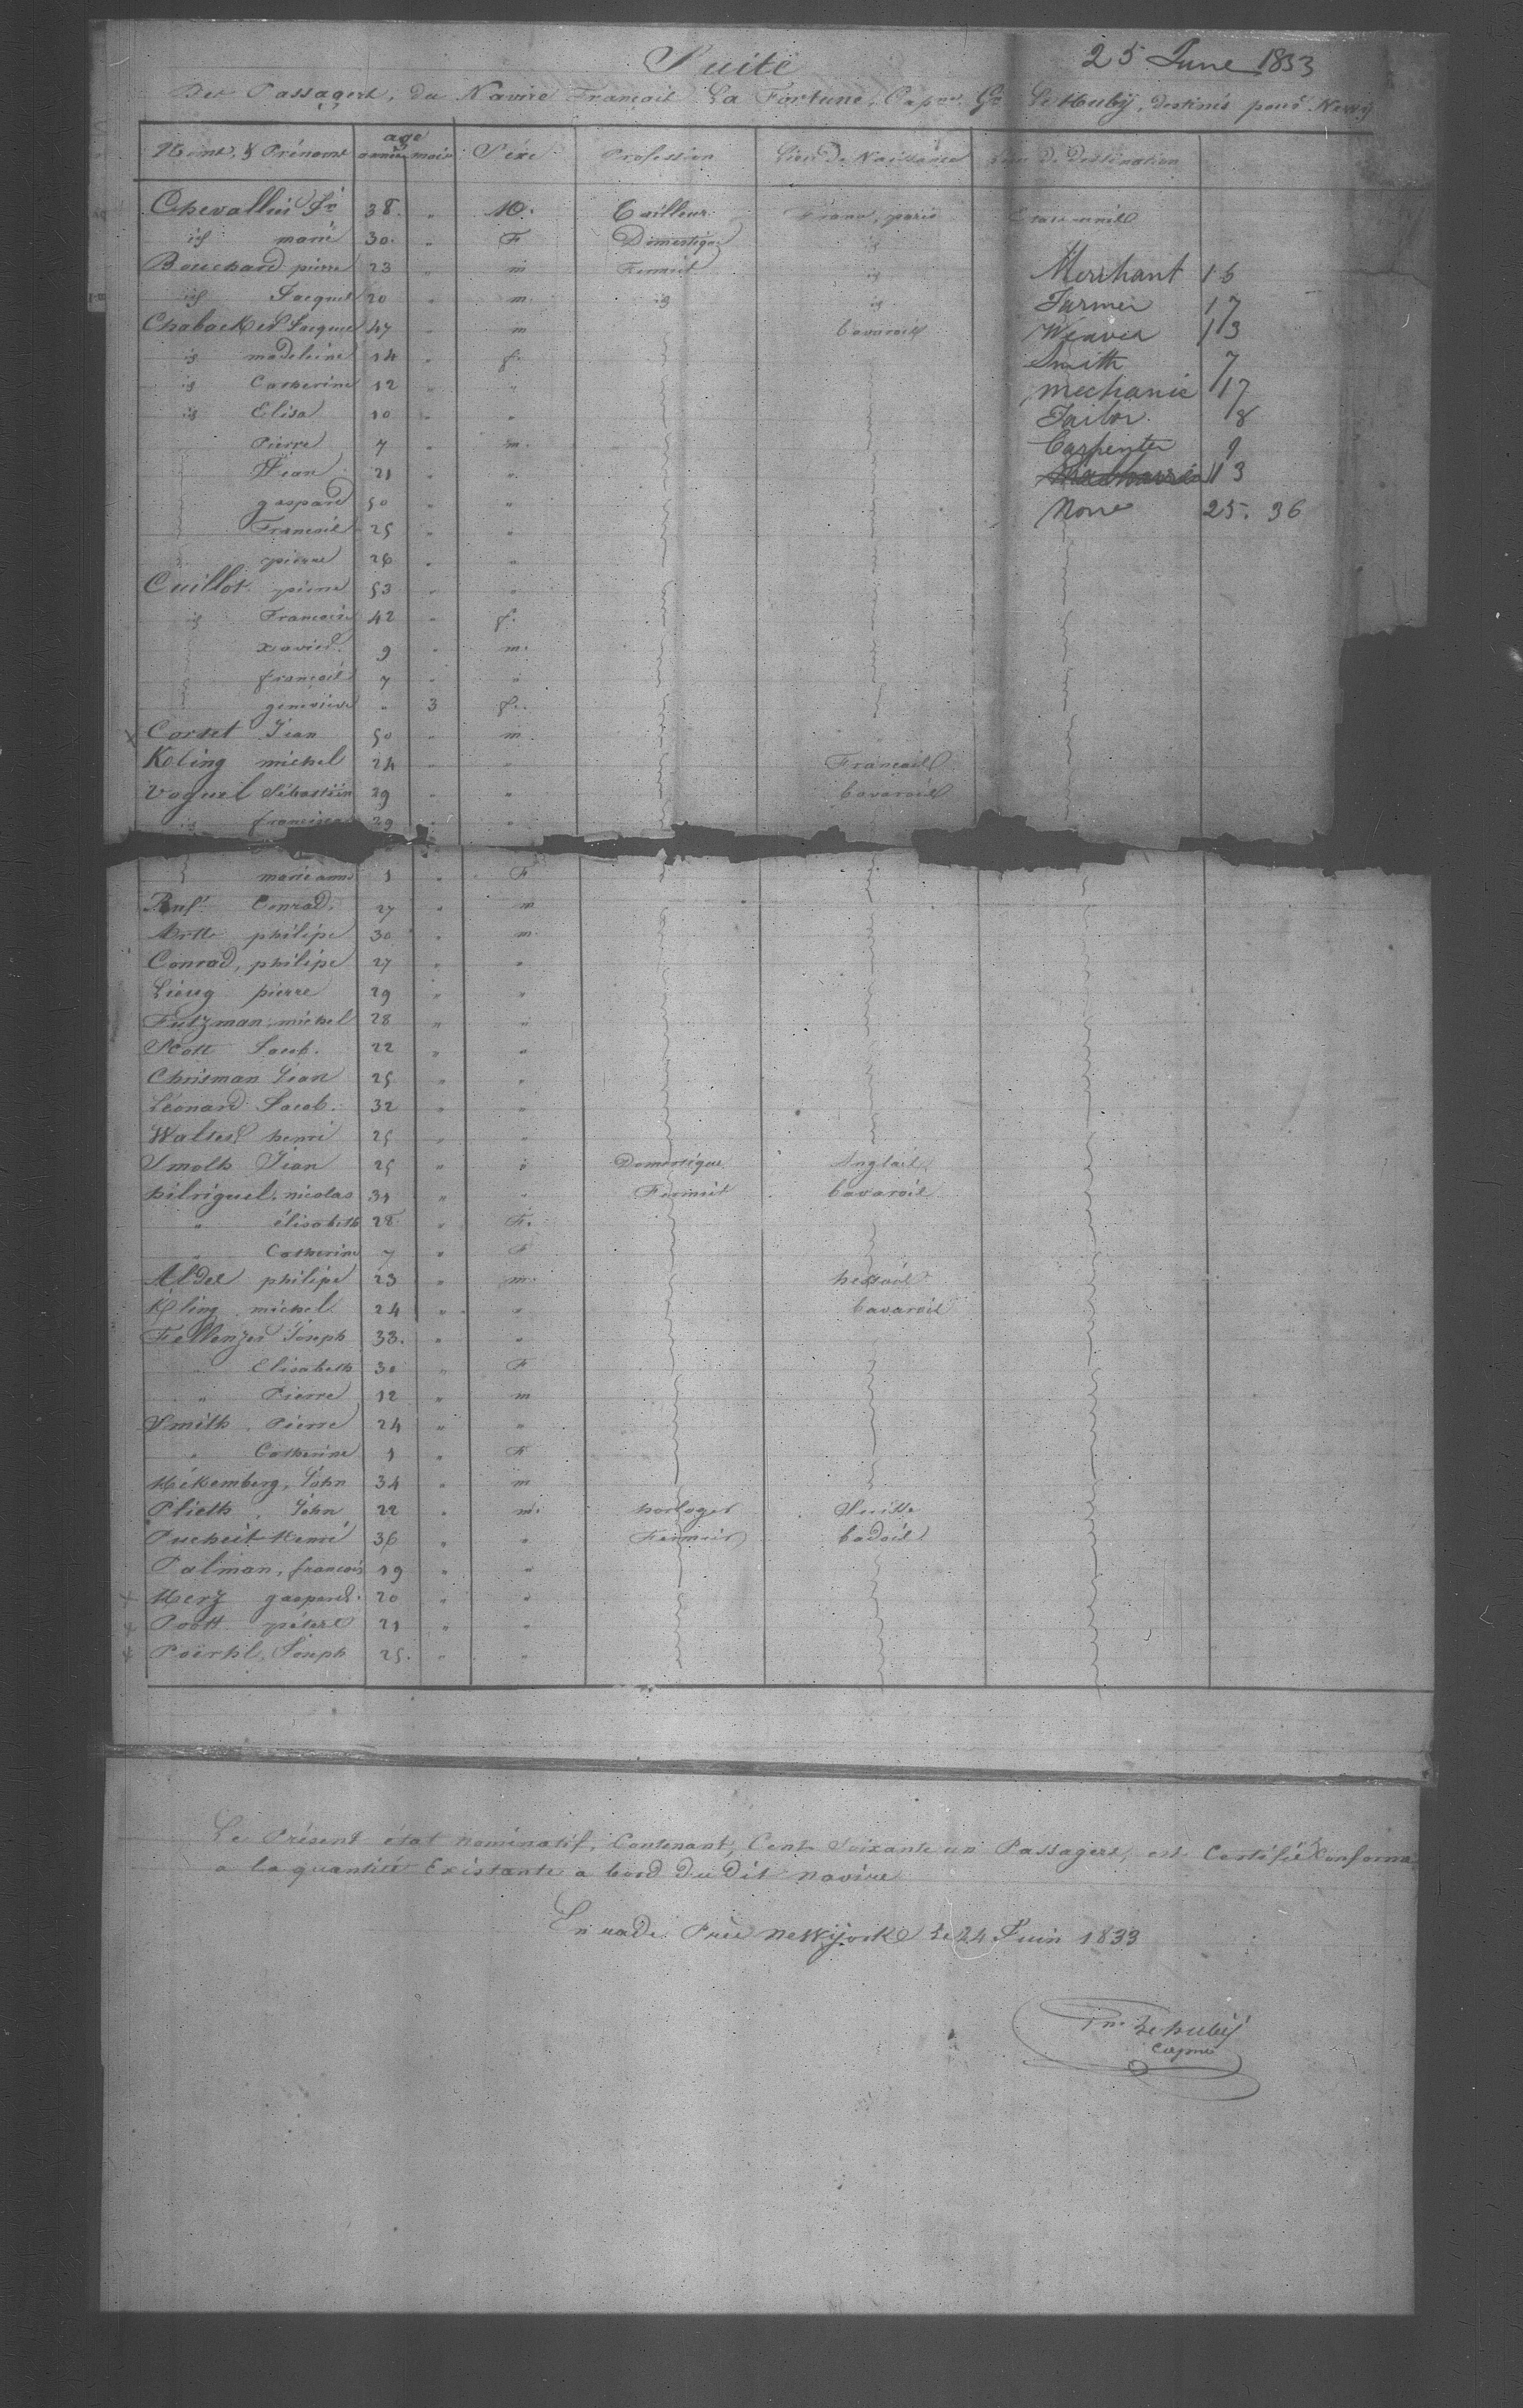 Suite
25 June 1833
Des Passagers, du Navire Français La Fortune, Capne. Le Huby, destinés pour New y
Noms, & Prénoms age années mois Séxe Profession Lieu De Naissance Lieu De Destination
Chevallier 38. " M. Tailleur France, paris Etats unis
id marie 30. " F Domestique id
Bouchard pierre 23 " m Fermier id Merchant 1 6
id Jacques 20 " m. id id Farmer 17
Jacques 47 " m bavarois Weaver 13
id madeleine 14 " f. Smith 7
id Catherine 12 " " mechanic 17
id Elisa 10 " " Tailor 8
Pierre 7 " m. Carpenter 9
Jean 21 " " 13
gaspard 50 " " None 25. 36
Francois 25 " "
pierre 26 " "
Cuillot pierre 53 " "
id Francoise 42 " f.
xavier 9 " m.
françois 7 " "
geneviève " 3 f.
x Corset Jean 50 " m
Koling michel 24 " " Francais
Voguel Sébastien 29 " " bavarois
id 29 " "
marie anne 1 " F
Conrad. 27 " m
philipe 30 " m.
Conrad, philipe 27 " "
pierre 29 " "
Futzman, michel 28 " "
Scott Jacob. 22 " "
Chrisman Jean 25 " "
Léonard Jacob. 32 " "
Walter henri 25 " "
Smolh Jean 25 " " Domestique Anglais
hilriguel, nicolas 31 " " Fermier bavarois
" élisabeth 28 " F.
" Catherine 7 " F
Alder philipe 23 " m. hessois
Kling michel 24 " " bavarois
Fellenzer Joseph 33. " "
" Elisabeth 30 " F
" Pierre 12 " m
Smith, Pierre 24 " "
" Catherine 1 " F
Hékemberg, John 34 " m
Plieth, John 22 " m. horloger Suisse
Pucheit Henri 36 " " Fermier badois
Palman, francois 19 " "
x Herz gaspard. 20 " "
x Poott pétere 21 " "
x Poirhl, Joseph 25. " "
Le Présent état nominatif, Contenant, Cent Soixante un Passagers, est Certifié Conforme
a la quantité Existante a bord du dit navire
En rade Près Newyork le 24 Juin 1833
Le huby
Capne